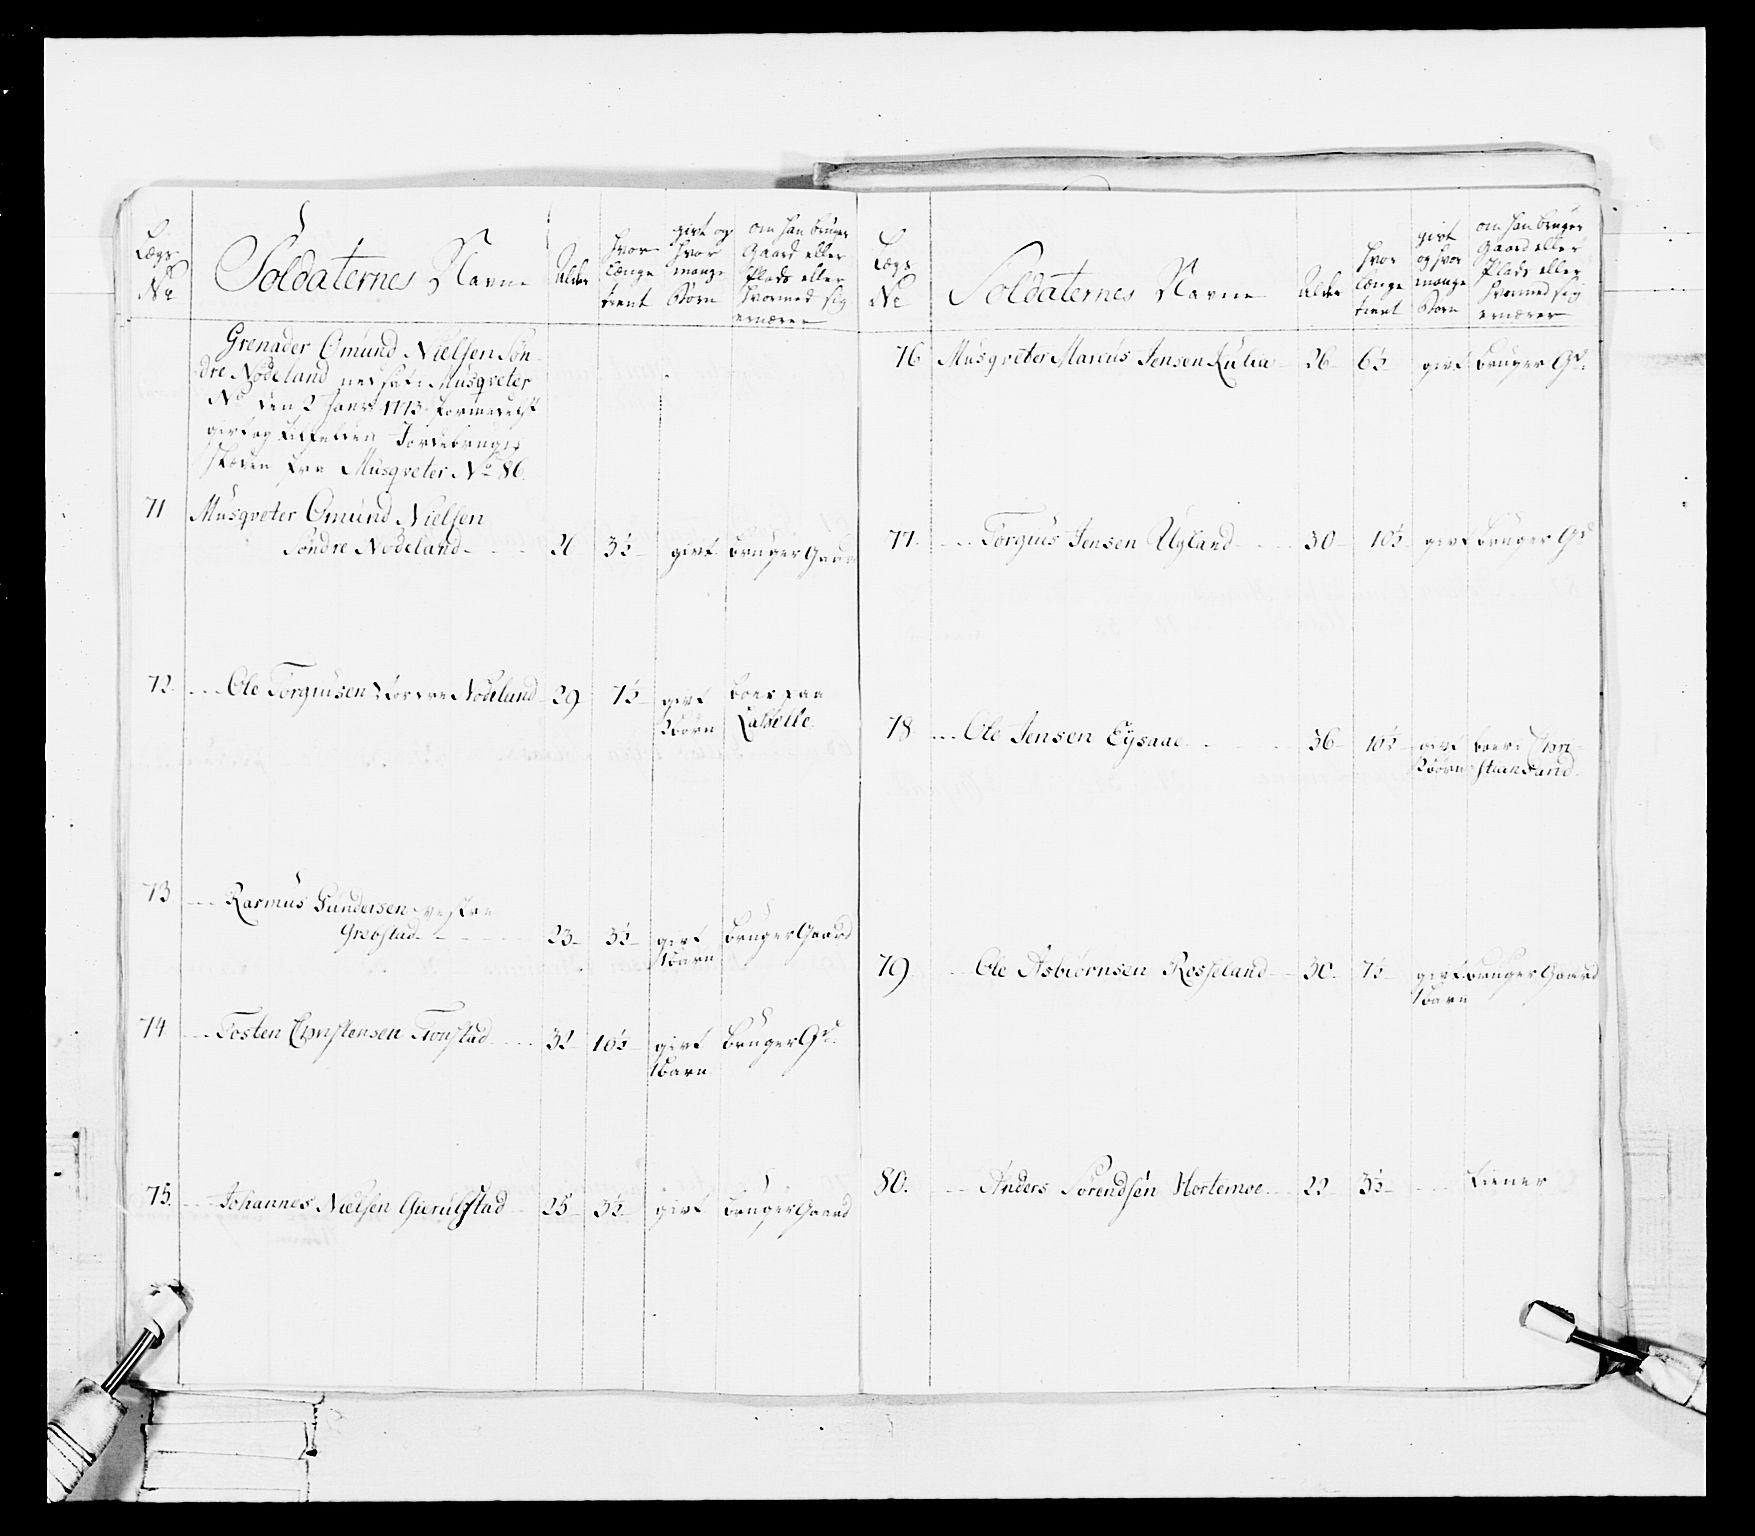 Lægs
No
Soldaternes Navne
Alder
hvor
længe
tient
givt og
hvor
mange
Børn
om han bruger
Gaard eller
Plads eller
hvormed sig
ernærer
Grenader Omund Nielsen Søn-
dre Nodeland nedsat i Musqveter
No den 2 Janr 1773 formedelst
givt og Jordebrug i
steden for Musqveter No 86.
71 Musqveter Omund Nielsen
Søndre Nodeland 26 3½ givt bruger Gaard
72. Ole Torgiusen Nordre Nodeland 29 7½ givt boer paa
2 børn
73 Rasmus Gundersen vestre
Grebstad 23 3½ givt bruger Gaard
1 barn
74 Tosten Christensen Tronstad 32 10½ givt bruger Gd.
1 barn
75. Johannes Nielsen Gierulfstad 25 3½ givt bruger Gaard
Lægs
No
Soldaternes Navne
Alder
hvor
længe
tient
givt
og hvor
mange
Børn
om han bruger
Gaard eller
Plads eller
hvormed sig
ernærer
76 Musqveter Marcus Jensen Kulia 26 6½ givt bruger Gd.
77. Torgius Jensen Ugland 30 10½ givt bruger Gd
78 Ole Jensen Eysaae 36 10½ givt boer i Chri-
2 børn stiansand.
79 Ole Asbiørnsen Rosseland 30 7½ givt bruger Gaard
1 barn
80. Anders Sørendsen Hortemoe 22 3½ tiener